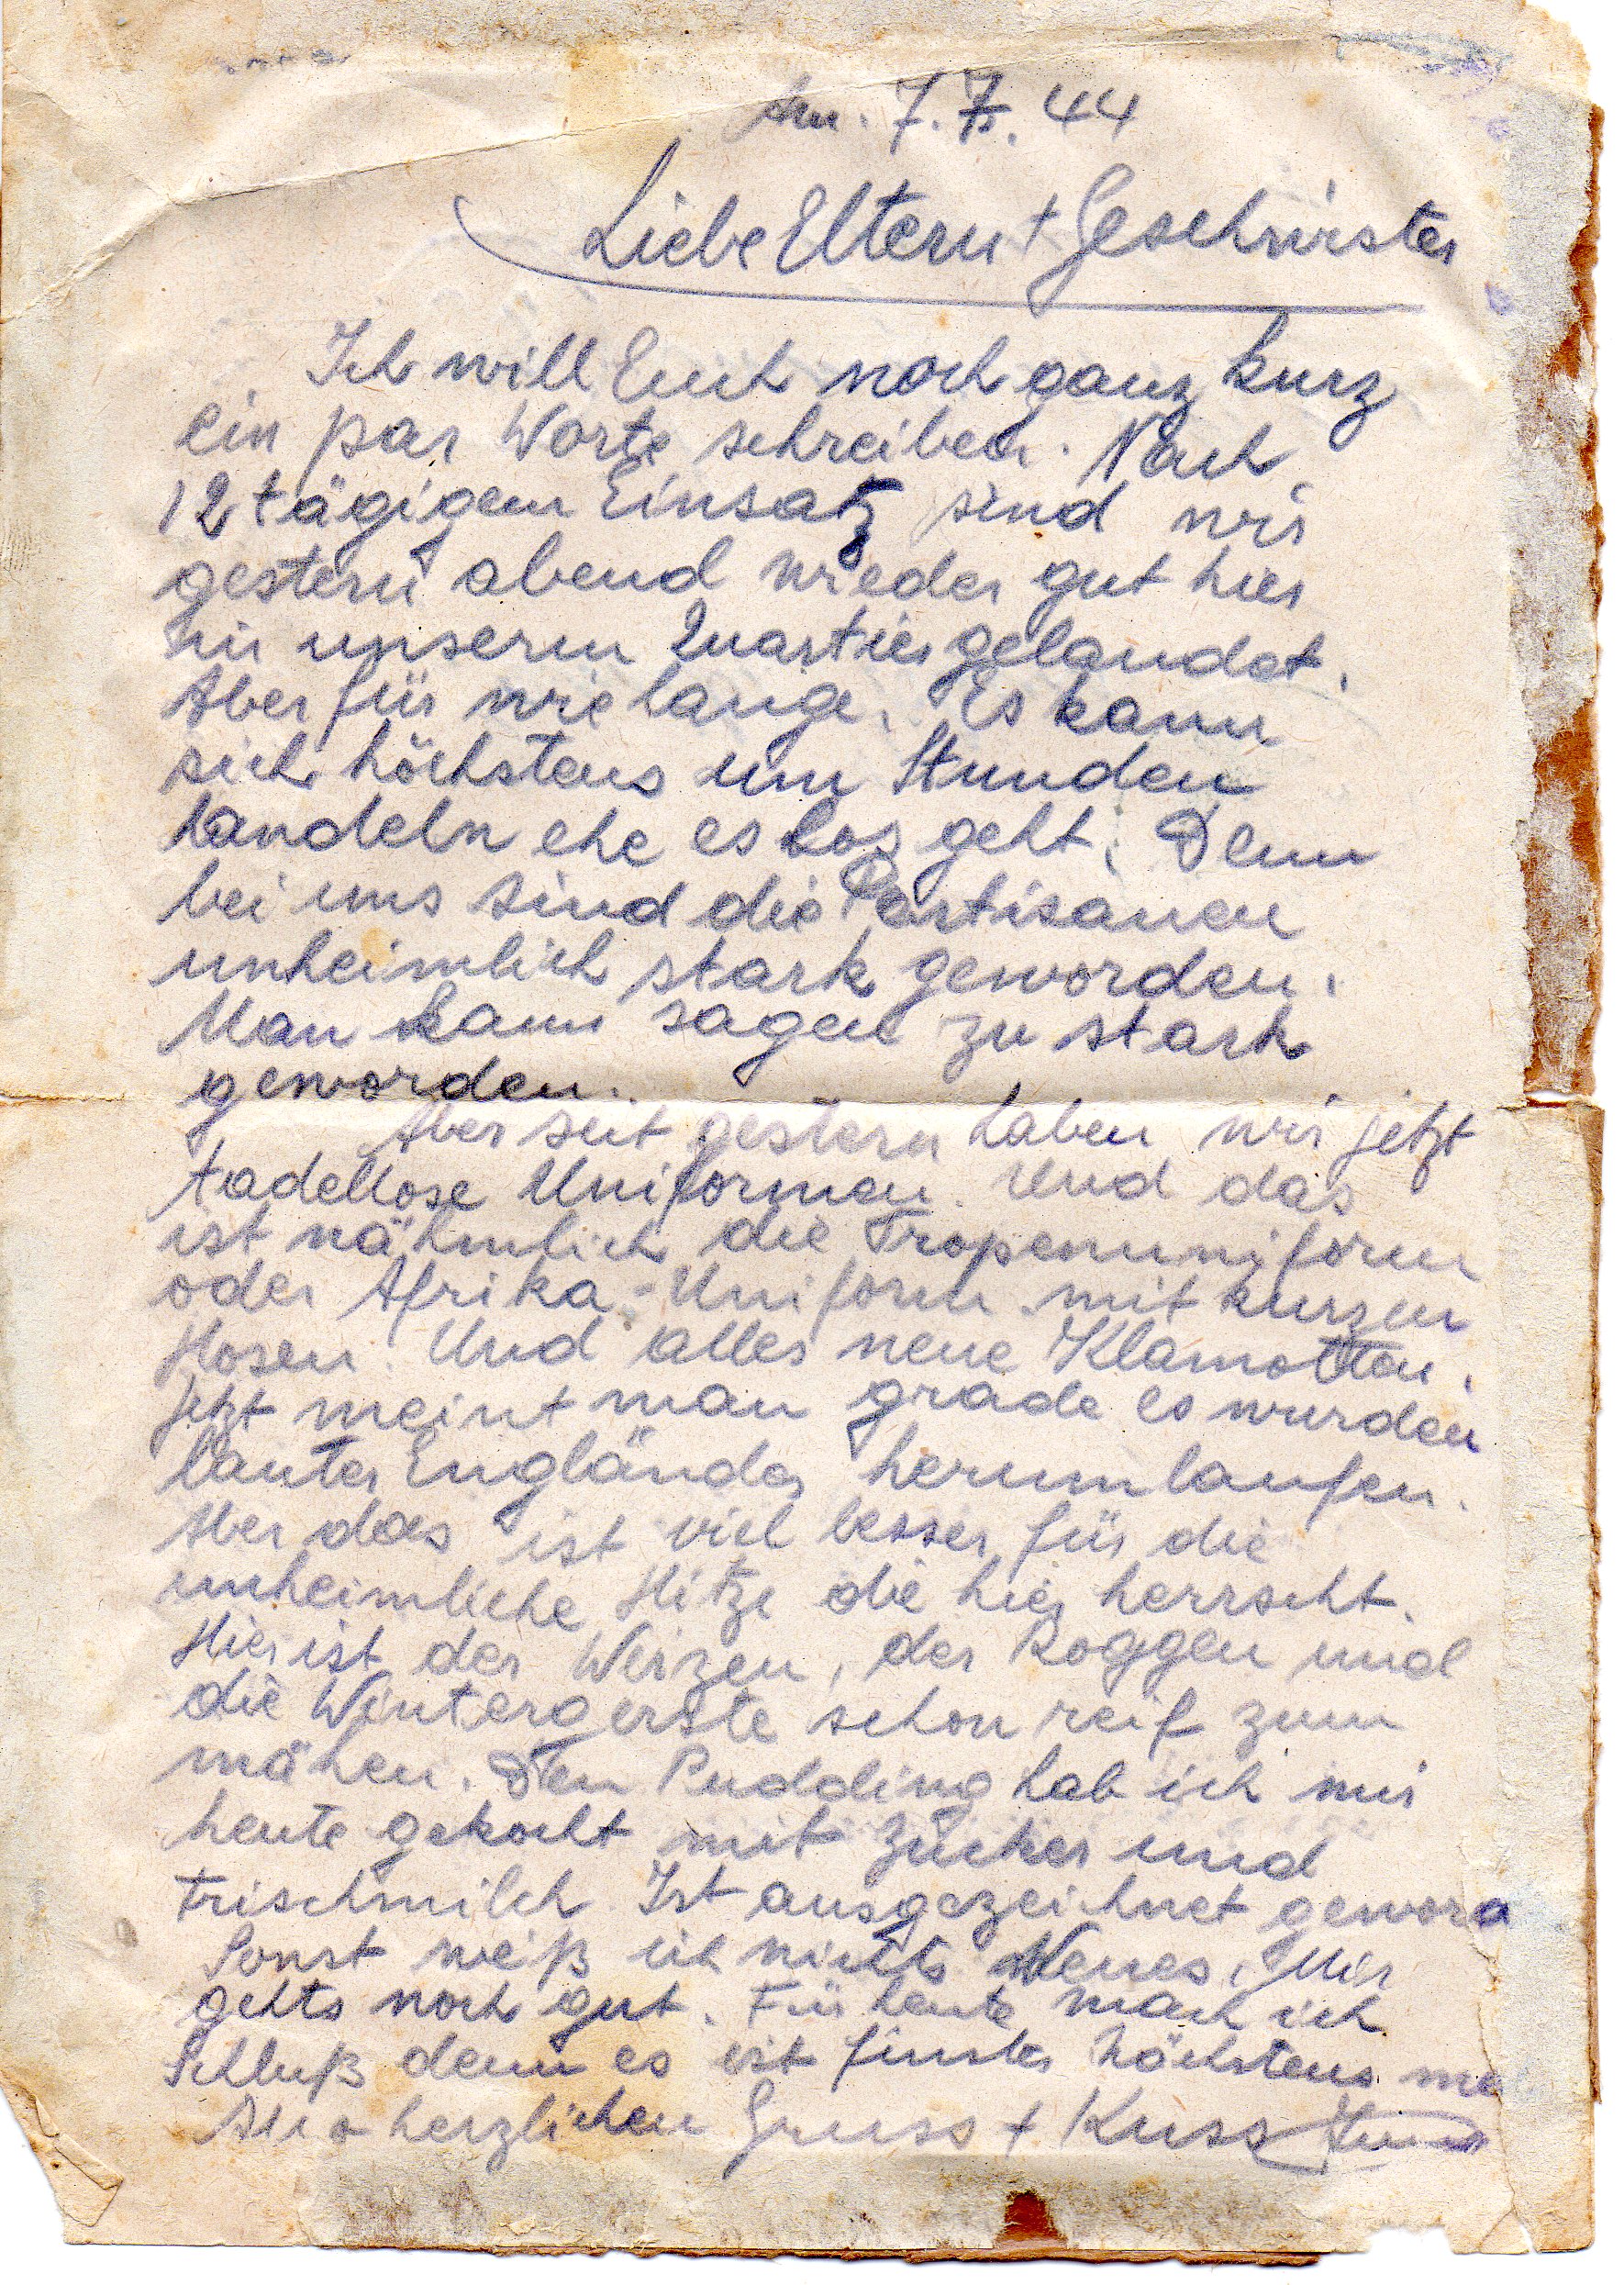 Am. 7. 7. 44
Liebe Eltern + Geschwister
Ich will Euch noch ganz kurz
ein par Worte schreiben. Nach
12 tägigem Einsatz sind wir
gestern abend wieder gut hier
in unserm Quartier gelandet.
Aber für wie lange. Es kann
sich höchstens um Stunden
handeln ehe es los geht. Denn
bei uns sind die Partisanen
unheimlich stark geworden.
Man kann sagen zu stark
geworden.
Aber seit gestern haben wir jetzt
tadellose Uniformen. Und das
ist nähmlich die Tropenuniform
oder Afrika-Uniform mit kurzen
Hosen. Und alles neue Klamotten.
Jetzt meint man grade es wurden
lauter Engländer herumlaufen.
Aber das ist viel besser für die
unheimliche Hitze die hier herrscht.
Hier ist der Weizen, der Roggen und
die Wintergerste schon reif zum
mähen. Den Pudding hab ich mir
heute gekocht mit Zucker und
Frischmilch. Ist ausgezeichnet geword
Sonst weiß ich nichts Neues. Mir
gehts noch gut. Für heute mach ich
Schluß denn es ist finster höchstens
Also herzlichen Gruss + Kuss